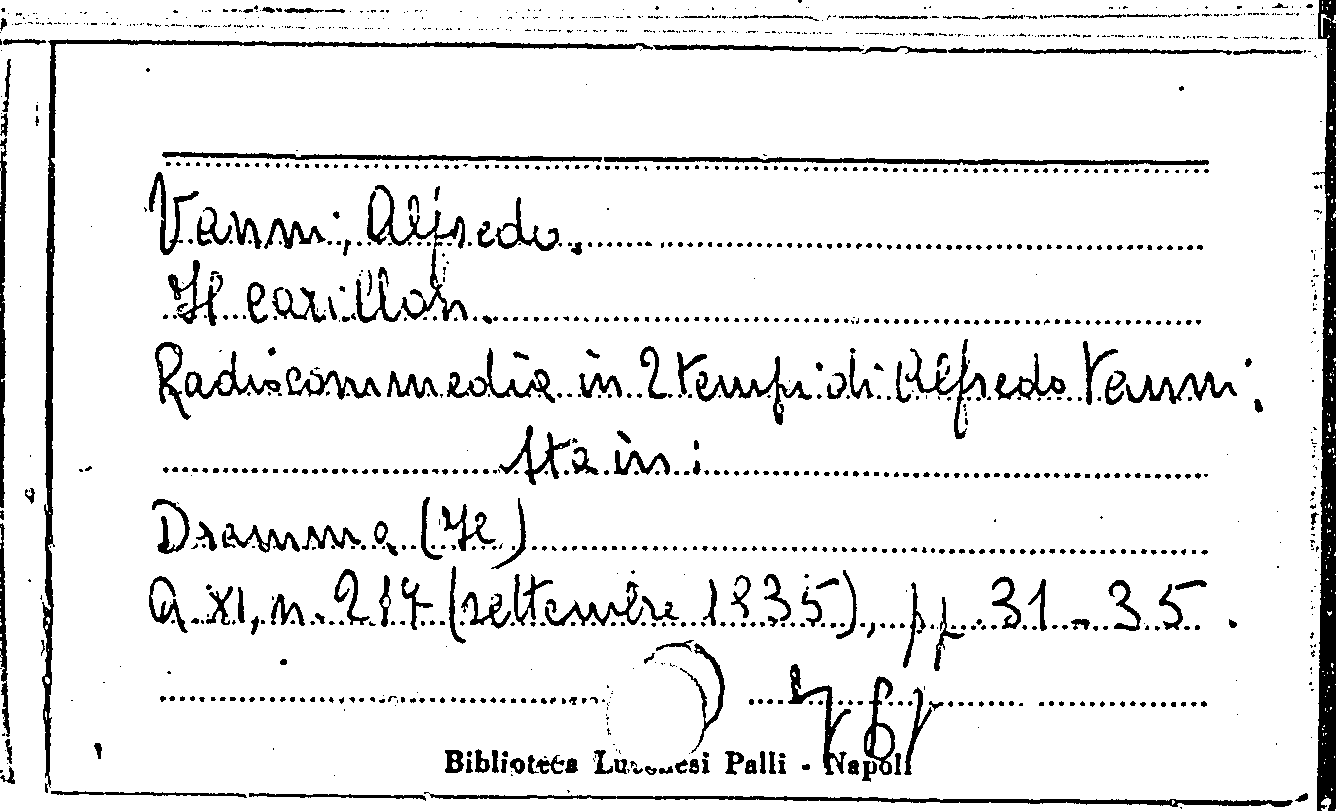 Vanni, Alfredo.
Il carillon.
Radiocommedia in 2 tempi di Alfredo Vanni,
sta in:
Dramma (Il)
A. XI, n. 217 (settembre 1935), pp. 31-35.
Biblioteca Lucchesi Palli - Napoli